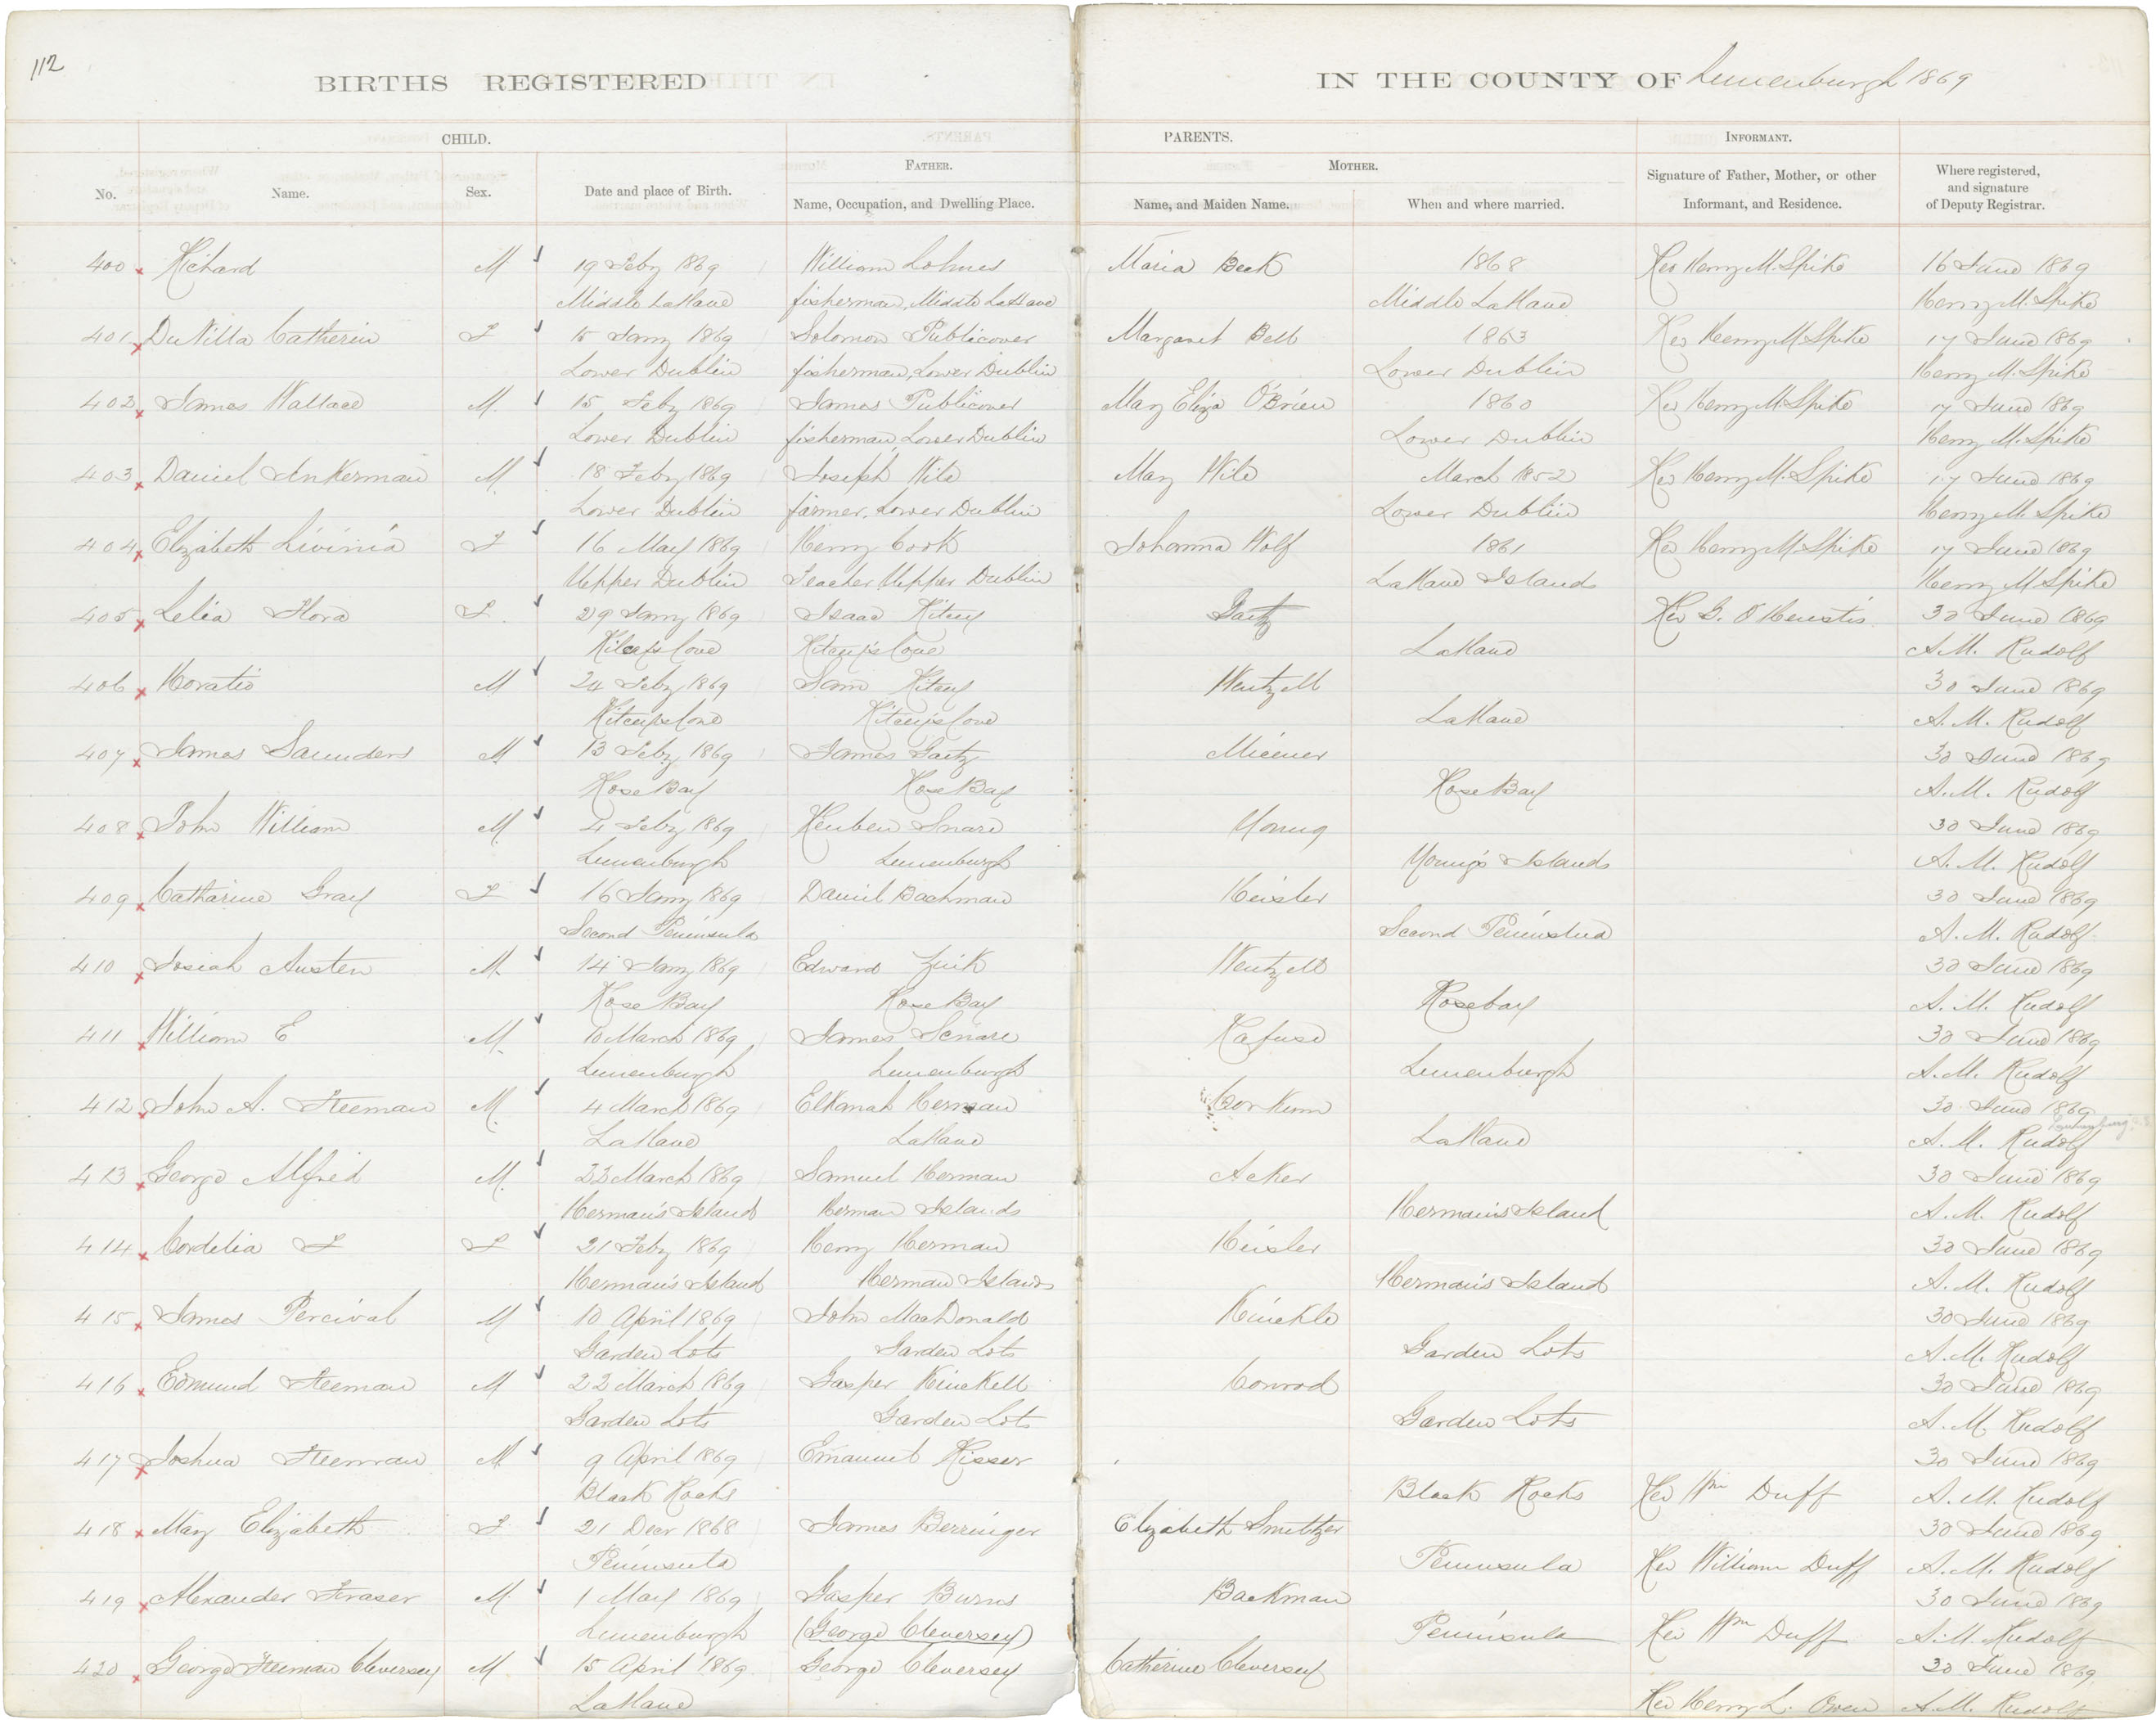 112
BIRTHS REGISTERED IN THE COUNTY OF Lunenburgh 1869
CHILD. PARENTS. INFORMANT.
FATHER. MOTHER.
No. Name. Sex. Date and place of Birth. Name, Occupation, and Dwelling Place. Name, and Maiden Name. When and where married. Signature of Father, Mother, or other Informant, and Residence. Where registered, and signature of Deputy Registrar.
400 Richard M 19 Feby 1869 William Lohnes Maria Beck 1868 Rev Henry M. Spike 16 June 1869
Middle LaHave fisherman, Middle LaHave Middle LaHave Henry M. Spike
401 Catherin F 15 Jany 1869 Solomon Publicover Margaret Bell 1863 Rev Henry M. Spike 17 June 1869
Lower Dublin fisherman, Lower Dublin Lower Dublin Henry M. Spike
402 James Wallace M. 15 Feby 1869 James Publicover Mary Eliza O'Brien 1860 Rev Henry M. Spike 17 June 1869
Lower Dublin fisherman, Lower Dublin Lower Dublin Henry M. Spike
403 Daniel Inkerman M. 18 Feby 1869 Joseph Wile Mary Wile March 1852 Rev Henry M. Spike 17 June 1869
Lower Dublin farmer, Lower Dublin Lower Dublin Henry M. Spike
404 Elizabeth Livinia F 16 May 1869 Henry Cook Johanna Wolf 1861 Rev Henry M. Spike 17 June 1869
Upper Dublin Teacher Upper Dublin LaHave Island Henry M. Spike
405 Lelia Flora F. 29 Jany 1869 Isaac Ritcey Gaetz Rev G. O Heustis 30 June 1869
Ritcey's Cove Ritcey's Cove LaHave A. M. Rudolf
406 Horatio M 24 Feby 1869 Sam Ritcey Wentzell 30 June 1869
Ritcey's Cove Ritcey's Cove LaHave A. M. Rudolf
407 James Saunders M. 13 Feby 1869 James Gaetz 30 June 1869
Rose Bay Rose Bay Rose Bay A. M. Rudolf
408 John William M. 4 Feby 1869 Reuben Snare Young 30 June 1869
Lunenburgh Lunenburgh Young's Islands A. M. Rudolf
409 Catharine Gray F 16 Jany 1869 Daniel Bachman Heisler 30 June 1869
Second Peninsula Second Peninsula A. M. Rudolf
410 Josiah Austen M. 14 Jany 1869 Edward Zink Wentzell 30 June 1869
Rose Bay Rose Bay Rosebay A. M. Rudolf
411 William E M. 10 March 1869 James Scnare Rafuse 30 June 1869
Lunenburgh Lunenburgh Lunenburgh A. M. Rudolf
412 John A. Freeman M. 4 March 1869 Elkanah Herman Corkum 30 June 1869
LaHave LaHave LaHave A. M. Rudolf
413 George Alfred M. 22 March 1869 Samuel Herman Acker 30 June 1869
Herman's Island Herman Islands Herman's Island A. M. Rudolf
414 Cordelia F F 21 Feby 1869 Henry Herman Heisler 30 June 1869
Herman's Island Herman Islands Herman's Island A. M. Rudolf
415 James Percival M 10 April 1869 John MacDonald Kinckle 30 June 1869
Garden Lots Garden Lots Garden Lots A. M. Rudolf
416 Edmund Freeman M 22 March 1869 Gasper Kinckell Conrod 30 June 1869
Garden Lots Garden Lots Garden Lots A. M. Rudolf
417 Joshua Freeman M 9 April 1869 Emanuel Risser 30 June 1869
Black Rocks Black Rocks Rev Wm Duff A. M. Rudolf
418 Mary Elizabeth F 21 Decr 1868 James Berringer Elizabeth Smeltzer 30 June 1869
Peninsula Peninsula Rev William Duff A. M. Rudolf
419 Alexander Fraser M. 1 May 1869 Gasper Burns Backman 30 June 1869
Lunenburgh (George Cleversey) Peninsula Rev Wm Duff A. M. Rudolf
420 George Freeman Cleversey M 15 April 1869 George Cleversey Catherine Cleversey 30 June 1869
LaHave Rev Henry L. Owen A. M. Rudolf